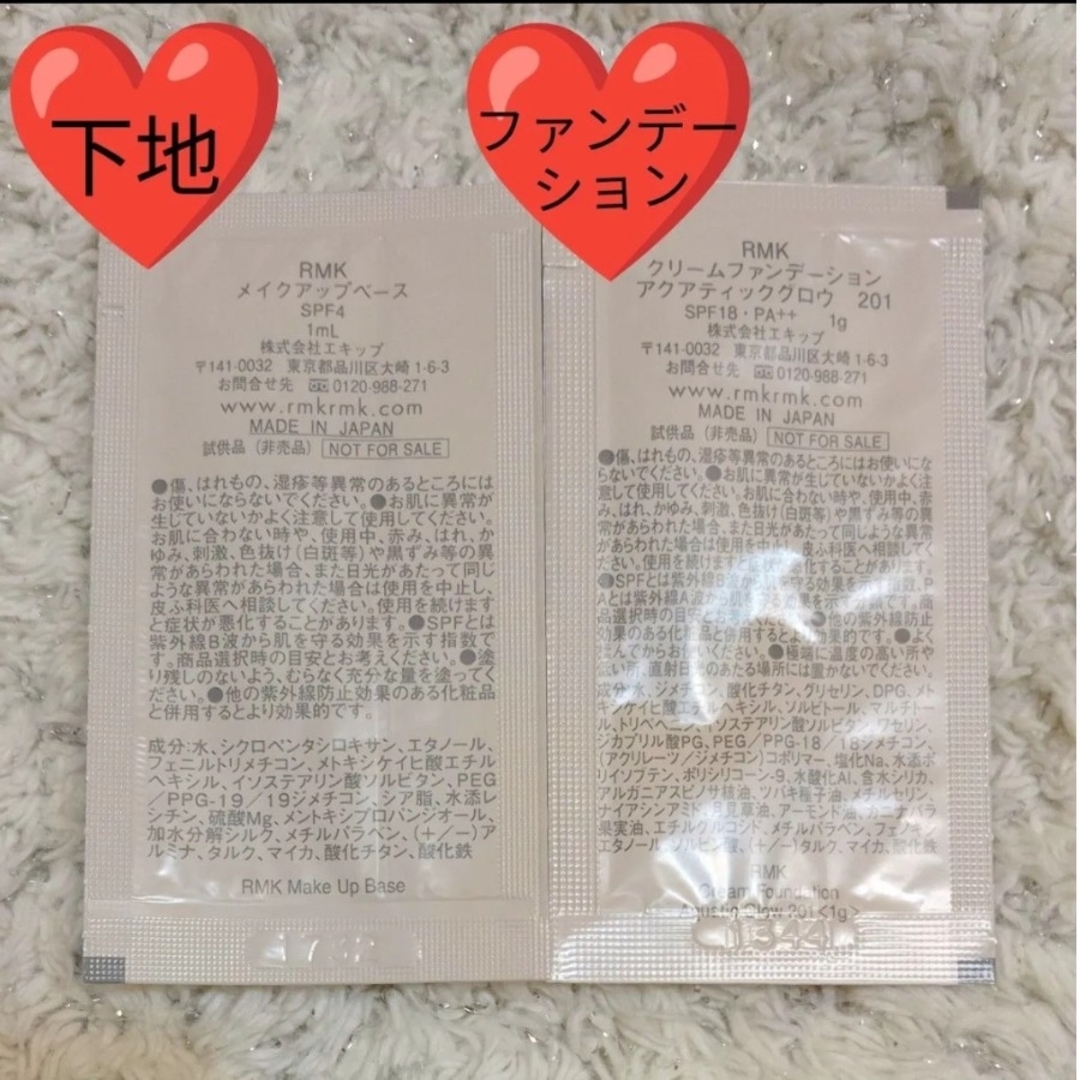 下地
ファンデー
ション
RMK
メイクアップベース
SPF4
1mL
株式会社エキップ
〒141-0032 東京都品川区大崎1-6-3
お問合せ先 0120-988-271
www.rmkrmk.com
MADE IN JAPAN
試供品（非売品） NOT FOR SALE
●傷、はれもの、湿疹等異常のあるところには
お使いにならないでください。●お肌に異常が
生じていないかよく注意して使用してください。
お肌に合わない時や、使用中、赤み、はれ、か
ゆみ、刺激、色抜け(白斑等)や黒ずみ等の異
常があらわれた場合、また日光があたって同じ
ような異常があらわれた場合は使用を中止し、
皮ふ科医へ相談してください。使用を続けます
と症状が悪化することがあります。●SPFとは
紫外線B波から肌を守る効果を示す指数で
す。商品選択時の目安とお考えください。●塗
り残しのないよう、むらなく充分な量を塗ってく
ださい。●他の紫外線防止効果のある化粧品
と併用するとより効果的です。
成分:水、シクロペンタシロキサン、エタノール、
フェニルトリメチコン、メトキシケイヒ酸エチル
ヘキシル、イソステアリン酸ソルビタン、PEG
/PPG-19/19ジメチコン、シア脂、水添レ
シチン、硫酸Mg、メントキシプロパンジオール、
加水分解シルク、メチルパラベン、(+/−)ア
ルミナ、タルク、マイカ、酸化チタン、酸化鉄
RMK Make Up Base
RMK
クリームファンデーション
アクアティックグロウ 201
SPF18・PA++ 1g
株式会社エキップ
〒141-0032 東京都品川区大崎1-6-3
お問合せ先 0120-988-271
www.rmkrmk.com
MADE IN JAPAN
試供品（非売品） NOT FOR SALE
●傷、はれもの、湿疹等異常のあるところにはお使いにな
らないでください。●お肌に異常が生じていないかよく注
意して使用してください。お肌に合わない時や、使用中、赤
み、はれ、かゆみ、刺激、色抜け(白斑等)や黒ずみ等の異
常があらわれた場合、また日光があたって同じような異常
があらわれた場合は使用を中止し、皮ふ科医へ相談してく
ださい。使用を続けますと症状が悪化することがあります。
●SPFとは紫外線B波から肌を守る効果を示す指数、P
Aとは紫外線A波から肌を 効果を示す 商
品選択時の目安とお考えください。●他の紫外線防止
効果のある化粧品と併用するとより効果的です。●よく
んでからお使いください。●極端に温度の高い所や
い所、直射日光のあたる場所には置かないでください。
成分:水、ジメチコン、酸化チタン、グリセリン、DPG、メト
キシケイヒ酸エチルヘキシル、ソルビトール、マルチトー
ル、トリベヘニン、イソステアリン酸ソルビタン、ワセリン、
ジカプリル酸PG、PEG/PPG-18/18ジメチコン、
(アクリレーツ/ジメチコン)コポリマー、塩化Na、水添ポ
リイソブテン、ポリシリコーン-9、水酸化Al、含水シリカ、
アルガニアスピノサ核油、ツバキ種子油、メチルセリン、
ナイアシンアミド、月見草油、アーモンド油、カニナバラ
果実油、エチルグルコシド、メチルパラベン、フェノキシ
エタノール、ソルビン酸、(+/−)タルク、マイカ、酸化鉄
RMK
Cream Foundation
Aquatic Glow 201<1g>
1344